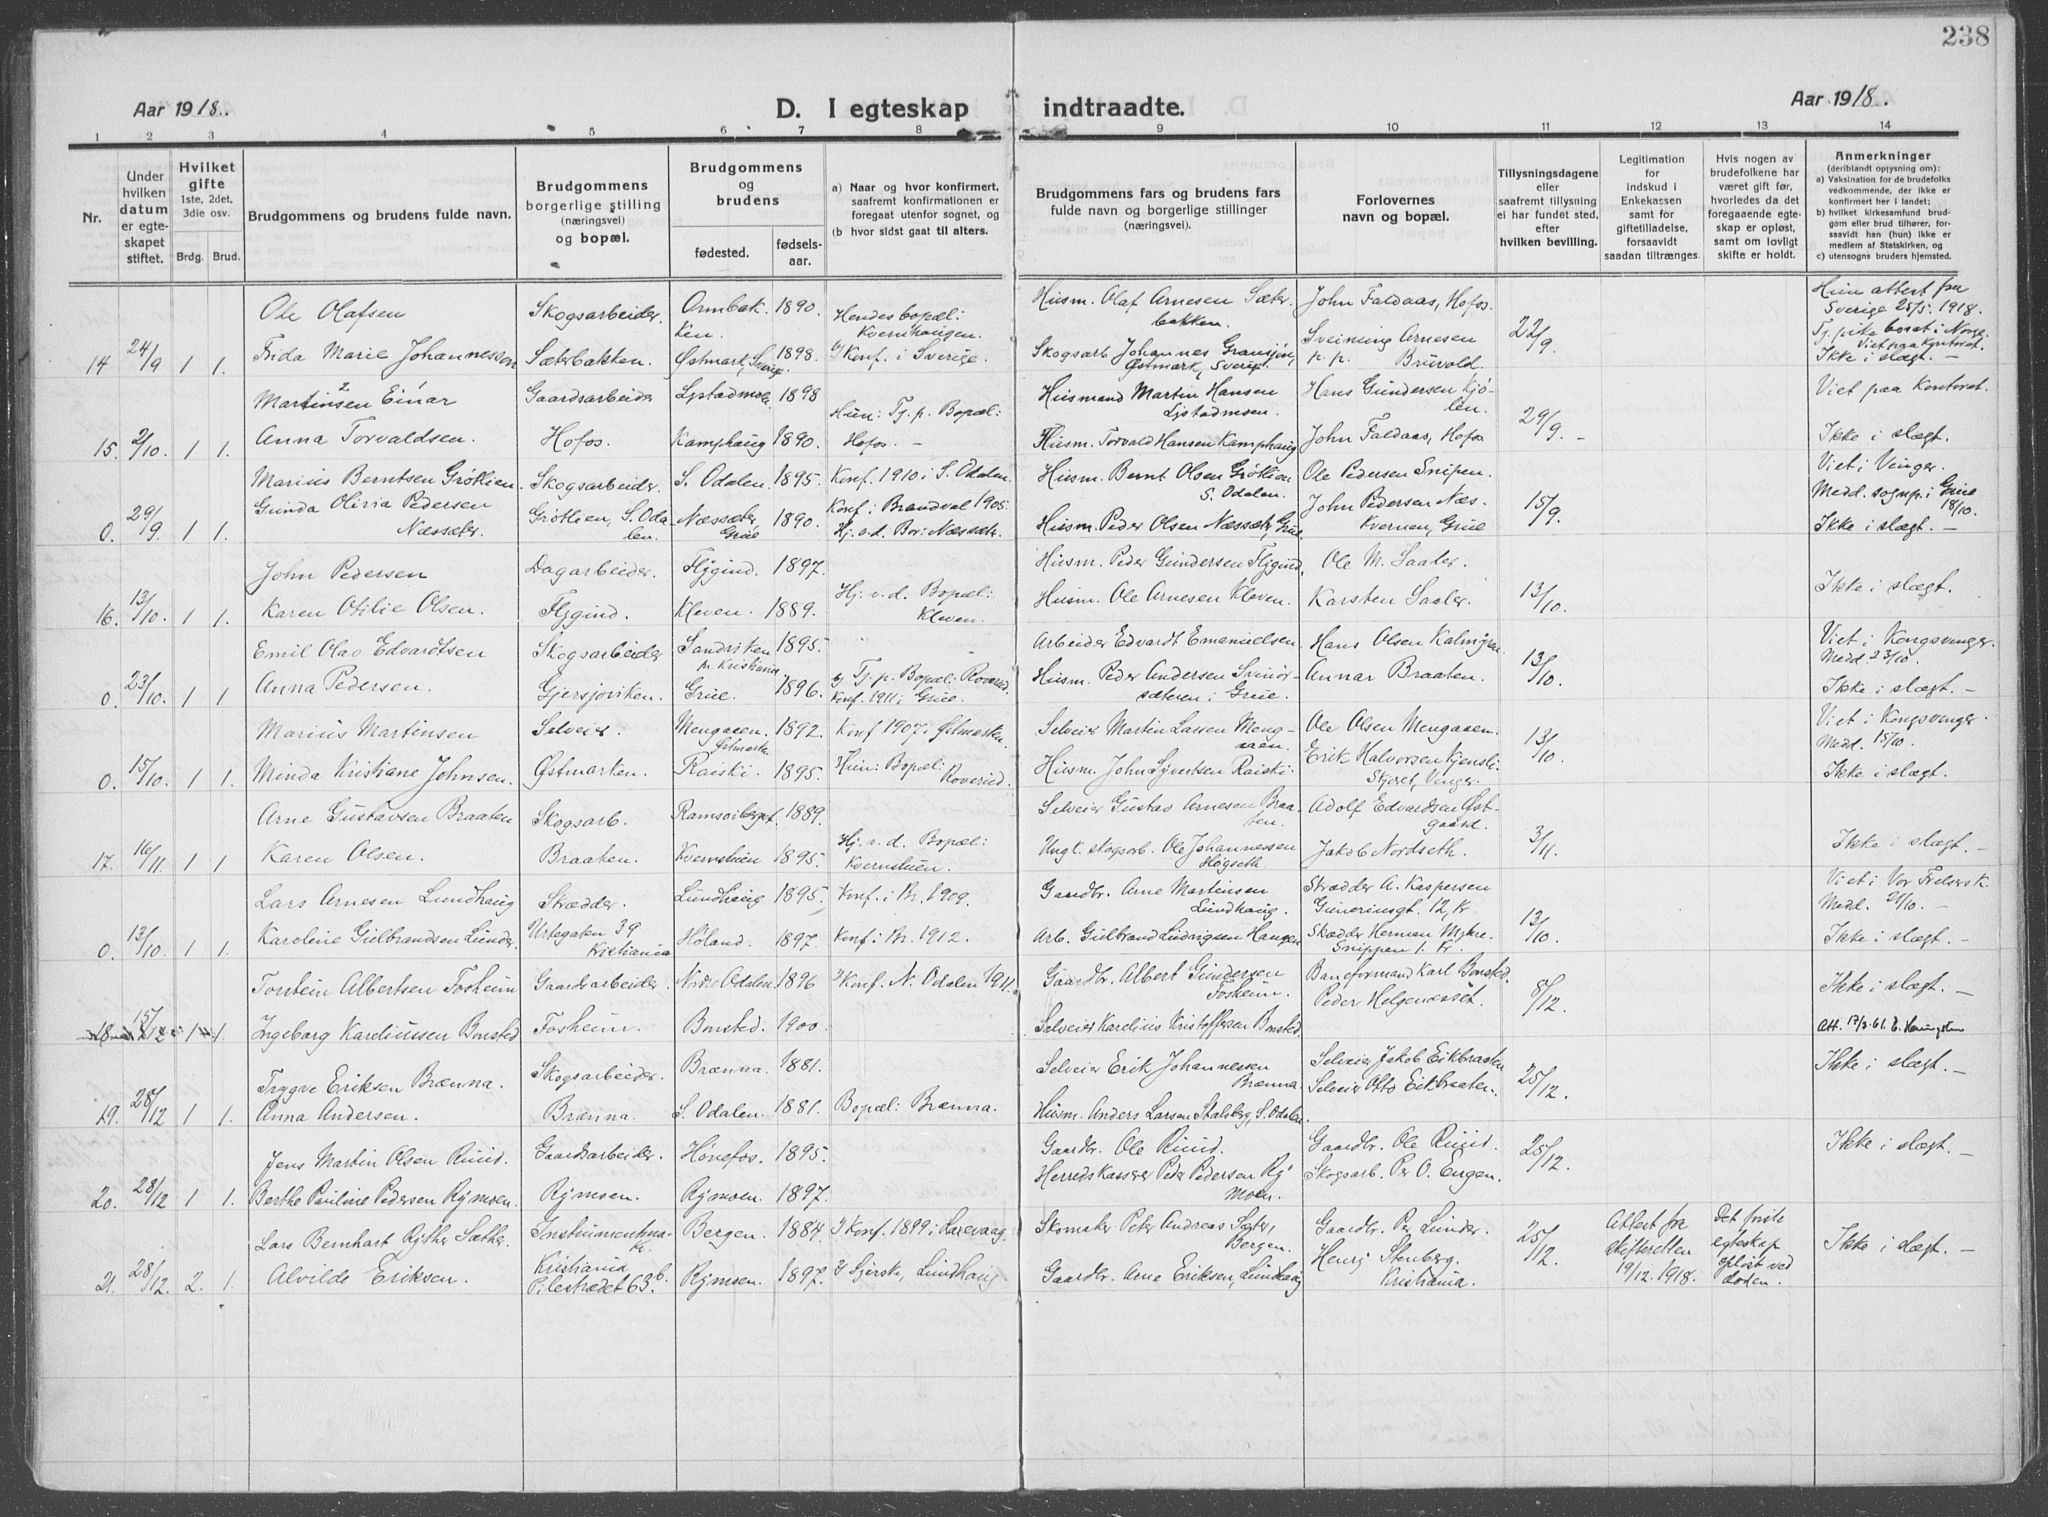 238
Aar 1918.
D. I egteskap indtraadte.
Aar 1918.
1 2 3 4 5 6 7 8 9 10 11 12 13 14
Nr.
Under hvilken datum er egteskapet stiftet.
Hvilket gifte 1ste, 2det, 3die osv.
Brdg. Brud.
Brudgommens og brudens fulde navn.
Brudgommens borgerlige stilling (næringsvei) og bopæl.
Brudgommens og brudens
fødested.
fødselsaar.
a) Naar og hvor konfirmert, saafremt konfirmationen er foregaat utenfor sognet, og
(b hvor sidst gaat til alters.
Brudgommens fars og brudens fars fulde navn og borgerlige stillinger (næringsvei).
Forlovernes navn og bopæl.
Tillysningsdagene eller saafremt tillysning ei har fundet sted, efter hvilken bevilling.
Legitimation for indskud i Enkekassen samt for giftetilladelse, forsaavidt saadan tiltrænges.
Hvis nogen av brudefolkene har været gift før, hvorledes da det foregaaende egteskap er opløst, samt om lovligt skifte er holdt.
Anmerkninger (deriblandt oplysning om):
a) Vaksination for de brudefolks vedkommende, der ikke er konfirmert her i landet;
b) hvilket kirkesamfund brudgom eller brud tilhører, forsaavidt han (hun) ikke er medlem av Statskirken, og
c) utensogns bruders hjemsted.
Ole Olafsen Skogsarbeider. Ormbakken. 1890. Hendes bopæl: Kvernhaugen. Husm. Olaf Arnesen Sæterbakken. John Faldaas, Hofos. Hun attest fra Sverige 25/5. 1918.
14 24/9 1 1. Frida Marie Johannesson Sæterbakken. Østmark, Sverige 1898. Konf. i Sverige. Skogsarb Johannes Gransjön, Østmark, Sverige. Sveinung Arnesen p. p. Bruvold. 22/9. Tj. pike bosat i Norge. Viet paa Kontoret. Ikke i slægt. –
Martinsen Einar Gaardsarbeider Lystadmoen 1898 Hun: Tj. p. Bopæl: Hofos. – Husmand Martin Hansen Lystadmoen. Hans Gundersen Kjølen. Viet paa Kontoret.
15. 2/10. 1 1. Anna Torvaldsen. Hofos. Kamphaug 1890. Husm. Torvald Hansen Kamphaug John Faldaas, Hofos 29/9. – Ikke i slægt.
Marius Berntsen Grøtlien. Skogsarbeider. S. Odalen. 1895. Konf. 1910 i S. Odalen. Husm. Bernt Olsen Grøtlien S. Odalen. Ole Pedersen Snipen. Viet i Vinger.
0. 29/9 1 1. Gunda Olivia Pedersen Næssæter. Grøtlien, S. Odalen. Næssæter, Grue 1890. Konf. i Brandval 1905. Hj. v. d. Bor: Næssæter. Husm. Peder Olsen Næssæter, Grue. John Pedersen Næskvernen, Grue 15/9. Medd. sognp. i Grue 18/10. Ikke i slægt. –
John Pedersen Dagarbeider. Flygind. 1897. Husm. Peder Gundersen Flygind. Ole M. Saaler.
16. 13/10. 1 1. Karen Otilie Olsen. Flygind. Kleven. 1889. Hj. v. d. Bopæl: Kleven. Husm. Ole Arnesen Kleven. Karsten Saaler. 13/10. Ikke i slægt.
Emil Olav Edvardtsen Skogsarbeider Sandviken pr. Kristiania 1895. Arbeider Edvardt Emanuelsen Hans Olsen Kalmyren. Viet i Kongsvinger. Medd. 23/10.
0. 23/10. 1 1 Anna Pedersen. Gjersjoviken. Grue. 1896. Tj. p. Bopæl: Roverud. Konf. 1911 i Grue. Husm. Peder Andersen i Grue. Annar Braaten. 13/10. Ikke i slægt. –
Marius Martinsen Selveier. Mengaaen. Østmarka 1892. Konf 1907 i Østmarken. Selveier Martin Larsen Mengaaen. Ole Olsen Mengaaen. Viet i Kongsvinger. Medd. 15/10.
0. 15/10. 1 1. Minda Kristiane Johnsen. Østmarken. Raiski. 1895. Hun: Bopæl: Roverud. Husm. John Syvertsen Raiski. Erik Halvorsen Vinger. 13/10. Ikke i slægt.
Arne Gustavsen Braaten Skogsarb. Ramsoiberget. 1889. Selveier Gustav Arnesen Braaten. Adolf Edvardsen Østgaard.
17. 16/11. 1 1 Karen Olsen. Braaten. Kvernstuen 1895. Hj. v. d. Bopæl: Kvernstuen. Ungk. skogsarb. Ole Johannessen Høgseth. Jakob Nordseth. 3/11. Ikke i slægt. –
Lars Arnesen Lundhaug Skrædder. Lundhaug 1895. Konf. i Br. 1909. Gaardbr. Arne Martinsen Lundhaug. Skrædder A. Kaspersen 12, Kr. Viet i Vor Frelsers K. Medd.
0. 13/10. 1 1. Karoline Gulbrandsen Lunder. Urtegaten 39 Kristiania Høland. 1897. Konf i Br. 1912. Arb. Gulbrand Ludvigsen Haugen Skædder Herman Myhre. Snippen 1. Kr. 13/10 Ikke i slægt. –
Torstein Albertsen Fosheim Gaardsarbeider. Nordre Odalen. 1896 Konf. N. Odalen 1911. Gaardbr. Albert Gundersen Fosheim. Baneformand Karl Bonsted.
18. 15/12 1 1. Ingeborg Kareliussen Bonsted Fosheim. Bonsted. 1900. Selveier Karelius Kristoffersen Bonsted. Peder Helgenæsset. 8/12. Ikke i slægt. – Att. 17/3-61.
Trygve Eriksen Brænna. Skogsarbeider. Brænna. 1881. Selveier Erik Johannessen Brænna. Selveier Jakob Eikbraaten Ikke i slægt.
19. 28/12 1 1. Anna Andersen. Brænna. S. Odalen. 1881. Bopæl: Brænna. Husm. Anders Larsen Stalsberg, S. Odalen. Selveier Otto Eikbraaten. 25/12.
Jens Martin Olsen Ruud. Gaardsarbeider. Hønefos. 1895. Gaardbr. Ole Ruud. Gaardbr. Ole Ruud. Ikke i slægt.
20. 28/12 1 1. Berthe Pauline Pedersen Rymoen. Rymoen. Rymoen. 1897. Herredskasserer Peder Pedersen Rymoen. Skogsarb. Per O. Engen. 25/12.
Lars Bernhart Rÿther Sæther. Instrumentmaker. Bergen. 1884. Konf. 1899 i Laxevaag. Skomaker Peter Andreas Sæter, Bergen. Gaardbr. Per Lunder. Attest fra skifteretten 19/12. 1918. Det første egteskap opløst ved døden.
21. 28/12. 2. 1. Alvilde Eriksen. Kristiania Pilestrædet 63b. Rymoen. 1897. Lundhaug Gaardbr. Arne Eriksen, Lundhaug Henry Stenberg. Kristiania. 25/12. Ikke i slægt. –